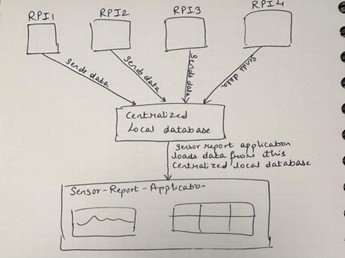 RPI1 RPI2 RPI3 RPI4
Sends data
Sends data
Sends data
Sends data
Centralized
Local database
Sensor report application
loads data from this
Centralized local database
Sensor-Report-Application